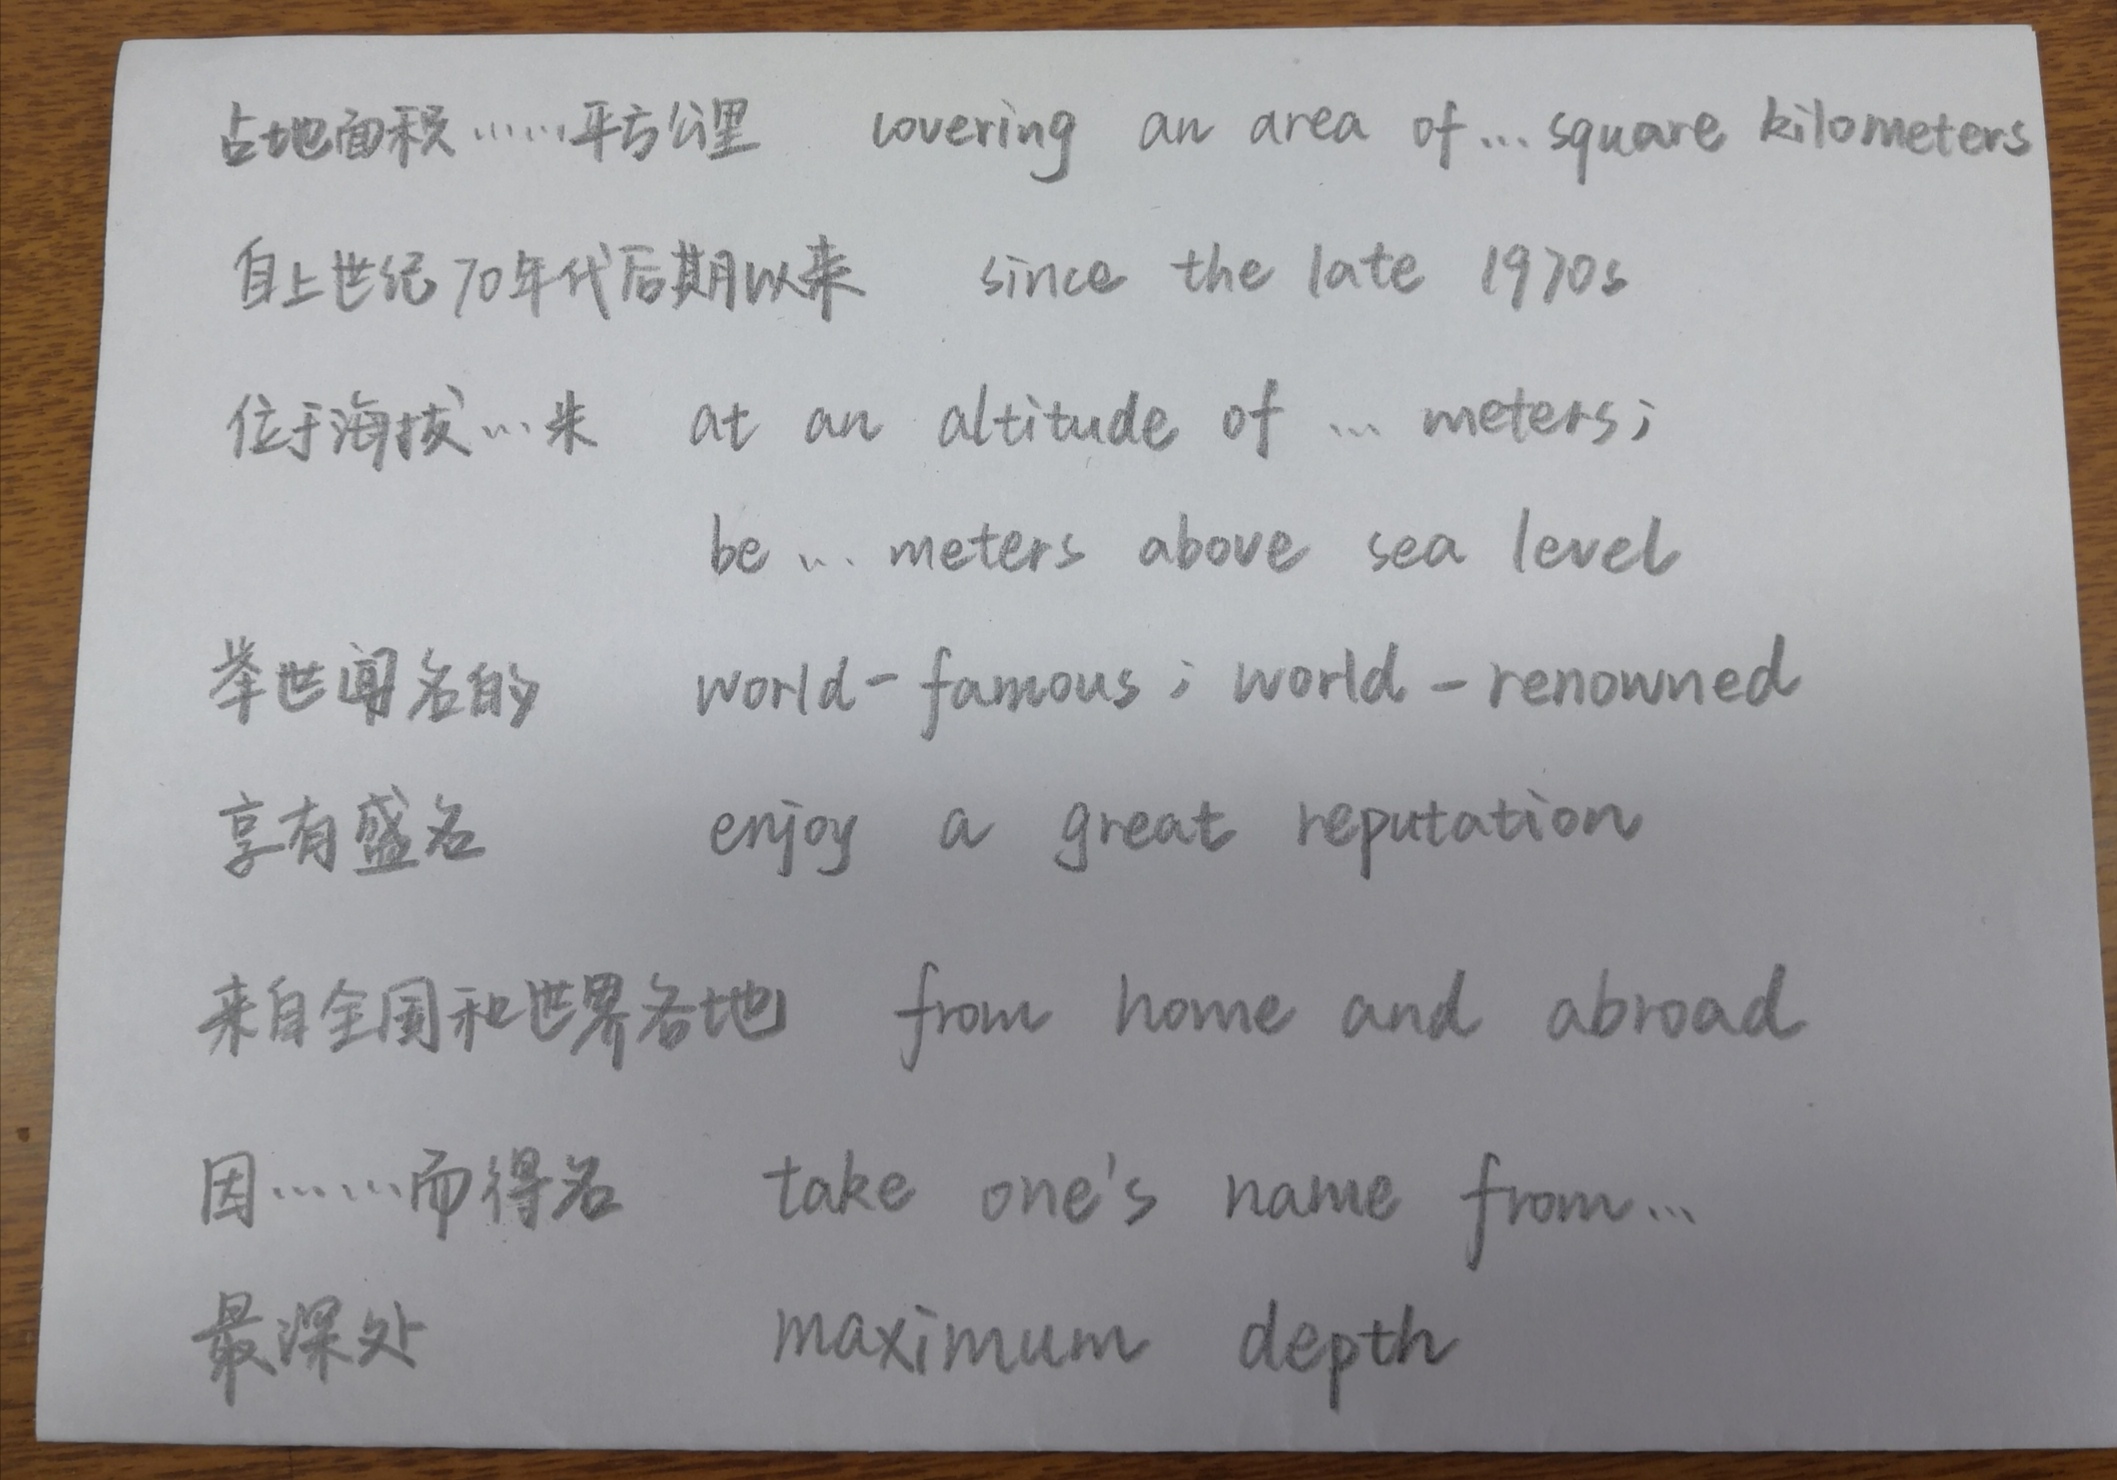 占地面积……平方公里 covering an area of... square kilometers
自上世纪70年代后期以来 since the late 1970s
位于海拔…米 at an altitude of ... meters;
be ... meters above sea level
举世闻名的 world-famous; world-renowned
享有盛名 enjoy a great reputation
来自全国和世界各地 from home and abroad
因……而得名 take one's name from...
最深处 maximum depth